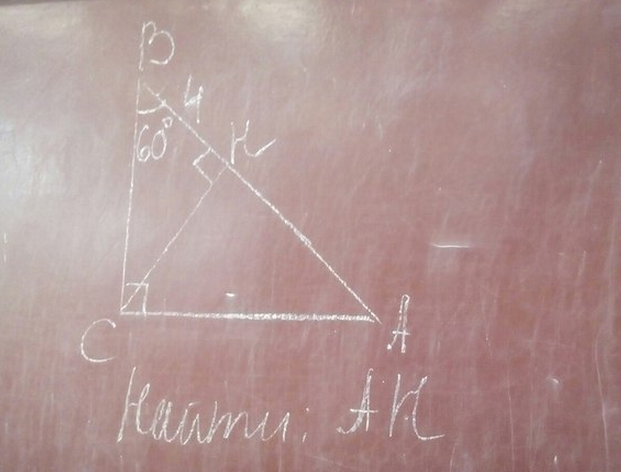 B
4
60° H
C A
Найти: AH